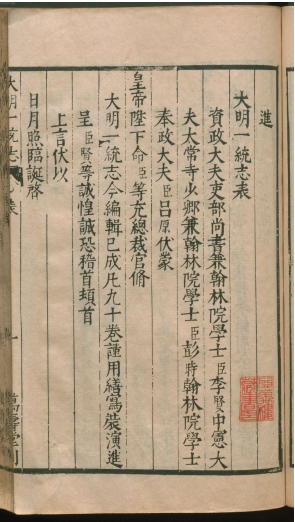 進
大明一統志表
資政大夫吏部尚書兼翰林院學士臣李賢中憲大
夫太常寺少卿兼翰林院學士臣彭時翰林院學士
奉政大夫臣呂原伏蒙
皇帝陛下命臣等充總裁官脩
大明一統志今編輯已成凡九十卷謹用繕寫裝潢進
呈臣賢等誠惶誠恐稽首頓首
上言伏以
日月照臨誕啓
大明一統志 表
一